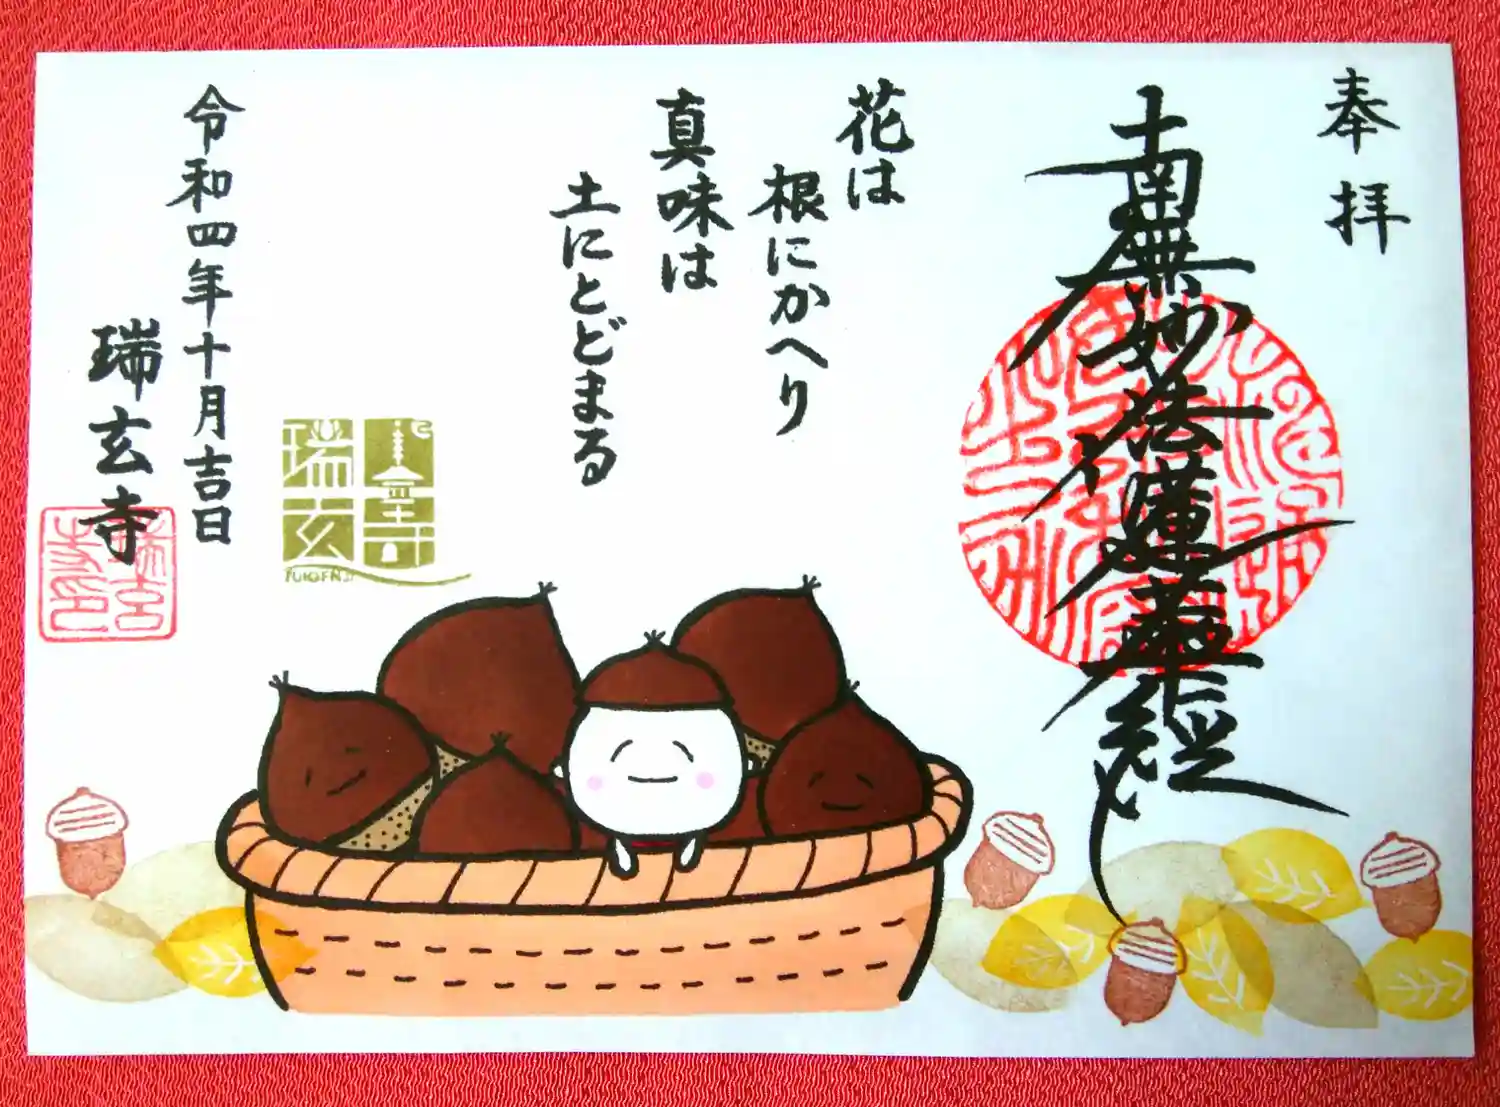 奉拝
南無妙法蓮華経
花は
根にかへり
真味は
土にとどまる
令和四年十月吉日
瑞玄寺
瑞玄寺